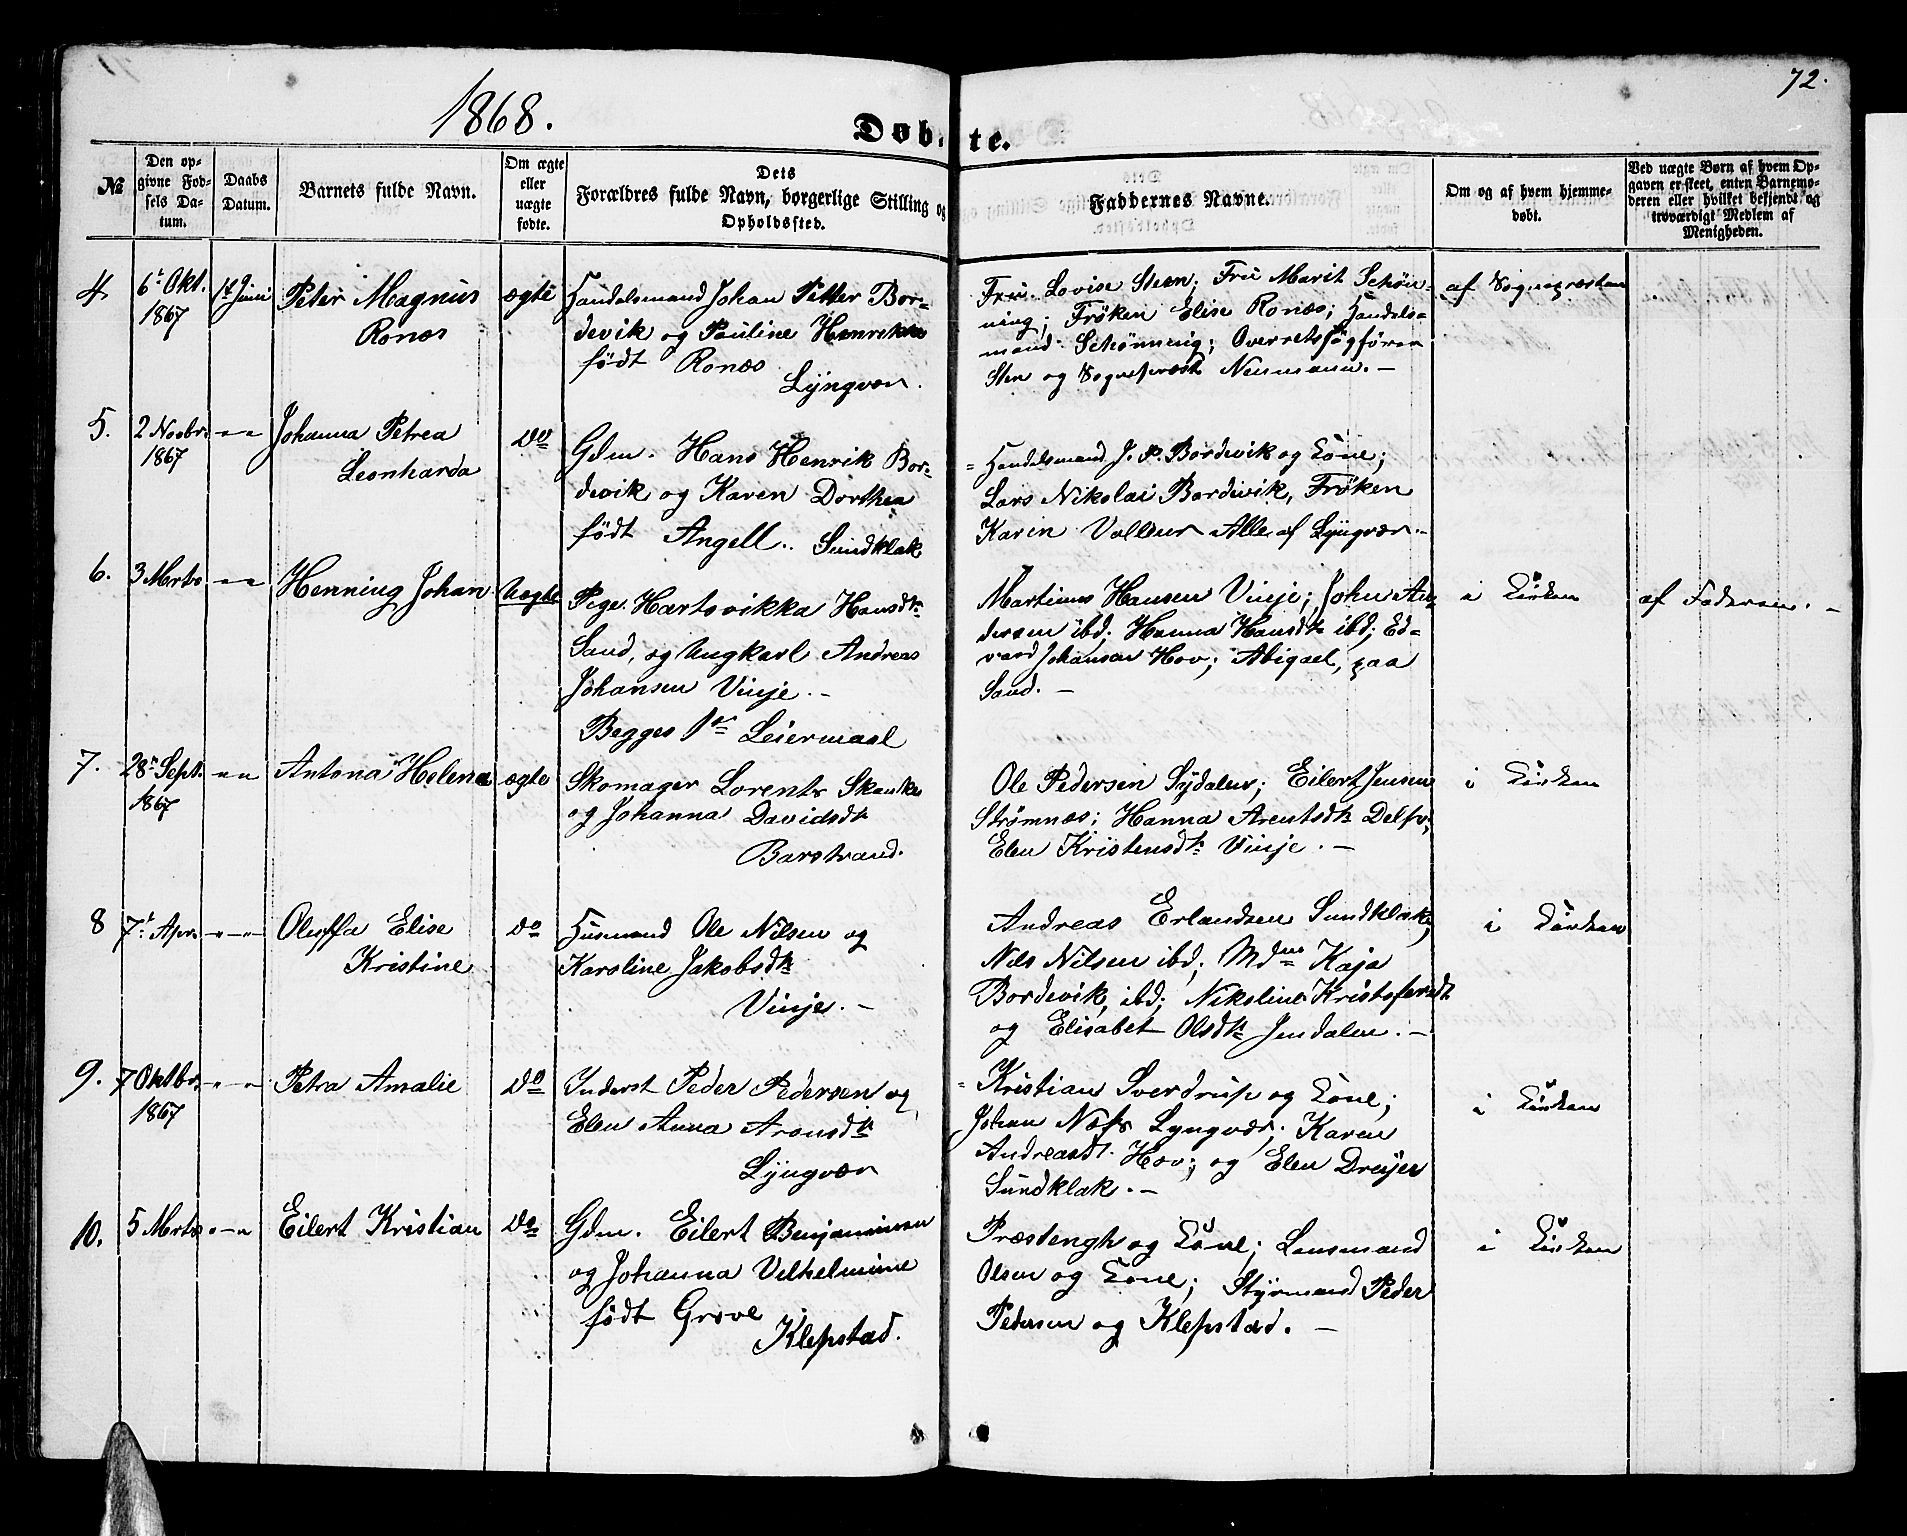 72.
1868.
Døbte.
No
Den opgivne Fødsels Datum.
Daabs Datum.
Barnets fulde Navn.
Om ægte eller uægte fødte.
Dets Forældres fulde Navn, borgerlige Stilling og Opholdssted.
Faddernes Navne.
Om og af hvem hjemmedøbt.
Ved uægte Børn af hvem Opgaven er skeet, enten Barnemoderen eller hvilket bekjendt og troværdigt Medlem af Menigheden.
4 6t Okt. 1867 14 Juni Peter Magnus Ronæs ægte
Handelsmand Johan Petter Bor-
devik og Pauline Henrikke
født Ronæs
Lyngvær.
Fru Lovise Steen; Fru Marit Schøn-
ning; Frøken Elise Ronæs; Handels-
mand Schønning; Overretssagfører
Sten og Sognepræst Neumann. –
af Sognepræsten
5. 2 Novbr. 1867 – „ – Johanna Petrea Leonharda Do
Gdm. Hans Henrik Bor-
devik og Karen Dorthea
født Angell. Sundklak
Handelsmand J. P. Bordevik og Kone;
Lars Nikolai Bordevik, Frøken
Karen Volleur Alle af Lyngvær. –
6. 3 Marts – „ – Henning Johan Uægte
Pige Hartsvikka Hansdtr
Sand, og Ungkarl Andreas
Johansen Vinje. –
Begges 1ste Leiermaal
Martinus Hansen Vinje; John An-
dersen ibd; Hanna Hansdtr ibd; Ed-
vard Johansen Hov; Abigael, paa
Sand. –
i Kirken
af Faderen. –
7. 28n Sept. 1867 – „ – Antona Helena ægte
Skomager Lorents Skanke
og Johanna Davidsdtr
Barstrand.
Ole Pedersen Sydalen; Eilert Jensen
Strømnæs; Hanna Arentsdtr Delp;
Elen Kristensdtr Vinje. –
i Kirken
8 7t Apr. – „ – Oluffa Elise Kristine Do
Husmand Ole Nilsen og
Karoline Jakobsdtr
Vinje. –
Andreas Erlandsen Sundklak;
Nils Nilsen ibd; Mdme Kaja
Bordevik, ibd; Nikoline Kristofersdtr
og Elisabet Olsdtr Jendalen. –
i Kirken
9. 7 Oktbr. 1867 – „ – Petra Amalie Do
Inderst Peder Pedersen og
Elen Anna Aronsdtr
Lyngvær
Kristian Sverdrup og Kone;
Johan Næss Lyngvær; Karen
Andreasdt. Hov; og Elen Dreyer
Sundklak. –
i Kirken
10. 5 Marts – „ – Eilert Kristian Do
Gdm. Eilert Benjaminsen
og Johanna Vilhelmine
født Grøve
Klepstad.
Præstengh og Kone; Lensmand
Olsen og Kone; Styrmand Peder
Pedersen og Klepstad. –
i Kirken